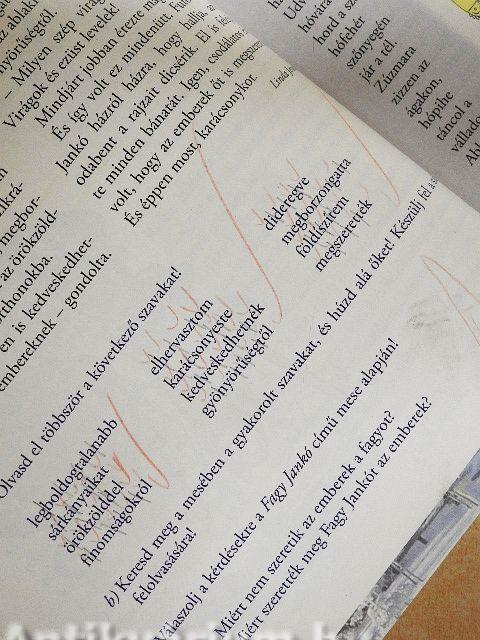 nyörűségről.
– Milyen szép virágok
Virágok és ezüst levelek!
Mindjárt jobban érezte magát
És így volt ez mindenütt! Futott
Jankó házról házra, hogy hallja,
odabent a rajzait dicsérik. El is
te minden bánatát. Igen, csodálatos
volt, hogy az emberek őt is megszerették
És éppen most, karácsonykor.
Linda
megbor-
az örökzöld-
otthonokba.
is kedveskedhet-
embereknek – gondolta.
Udv
hóvára
hord a sz
hófehér
szőnyegén
jár a tél.
Zúzmara
zizzen az
ágakon,
hópihe
táncol a
vállado
Abl
Olvasd el többször a következő szavakat!
legboldogtalanabb
sárkányaikat
örökzölddel
finomságokról
elhervasztom
karácsonyeste
kedveskedhetnék
gyönyörűségtől
dideregve
megborzongatta
földíszítem
megszerették
b) Keresd meg a mesében a gyakorolt szavakat, és húzd alá őket! Készülj fel a
felolvasására!
Válaszolj a kérdésekre a Fagy Jankó című mese alapján!
Miért nem szeretik az emberek a fagyot?
Miért szerették meg Fagy Jankót az emberek?